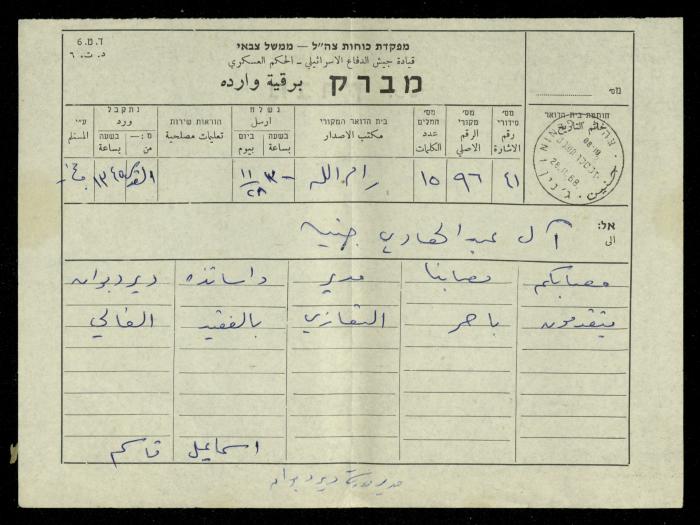 ד.ט.6
د.ت.٦
מפקדת כוחות צה"ל — ממשל צבאי
قيادة جيش الدفاع الاسرائيلي - الحكم العسكري
מברק برقية وارده
מס'
חותמת בית-הדואר
خاتم التاريخ
מס' סידורי
رقم الاشارة
מס' מקורי
الرقم الاصلي
מס' המלים
عدد الكلمات
בית הדואר המקורי
مكتب الاصدار
נשלח
ارسل
בשעה
بساعة
ביום
بيوم
הוראות שירות
تعليمات مصلحية
נתקבל
ورد
מ:—
من
בשעה
بساعة
ע"י
المستلم
٤١ ٩٦ ١٥ رام الله ١١/٢٨ القدس ١٣٤٥
JENIN
28.11.68
جنين
אל:
الى
آل عبد الهادي جنين
مصابكم مصابنا مدير واساتذه ديردبوان
يتقدمون باحر التعازي بالفقيد الغالي
اسماعيل قاسم
مدير مدرسة ديردبوان